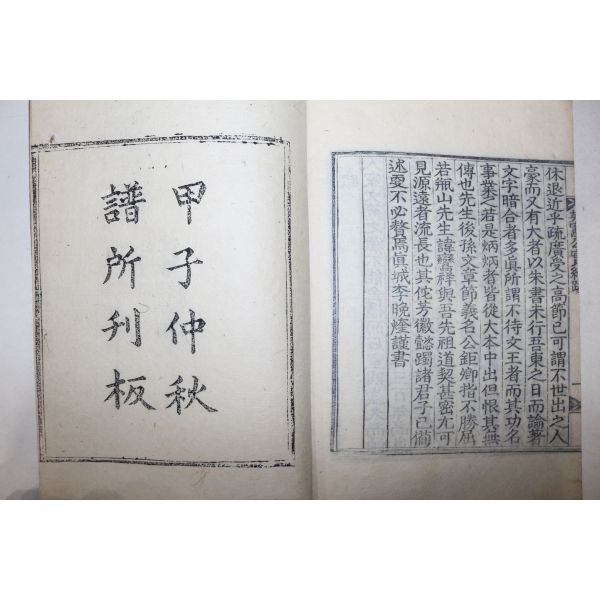 休退近乎疏廣受之高節已可謂不世出之人
豪而又有大者以朱書未行吾東之日而論著
文字暗合者多眞所謂不待文王者而其功名
事業之若是炳炳者皆從大本中出但恨其無
傳也先生後孫文章節義名公鉅卿指不勝屈
若甁山先生諱鸞祥與吾先祖道契甚密尤可
見源遠者流長也其侘芳徽懿躅諸君子已備
述更不必贅焉眞城李晩煃謹書
甲子仲秋
譜所刋板